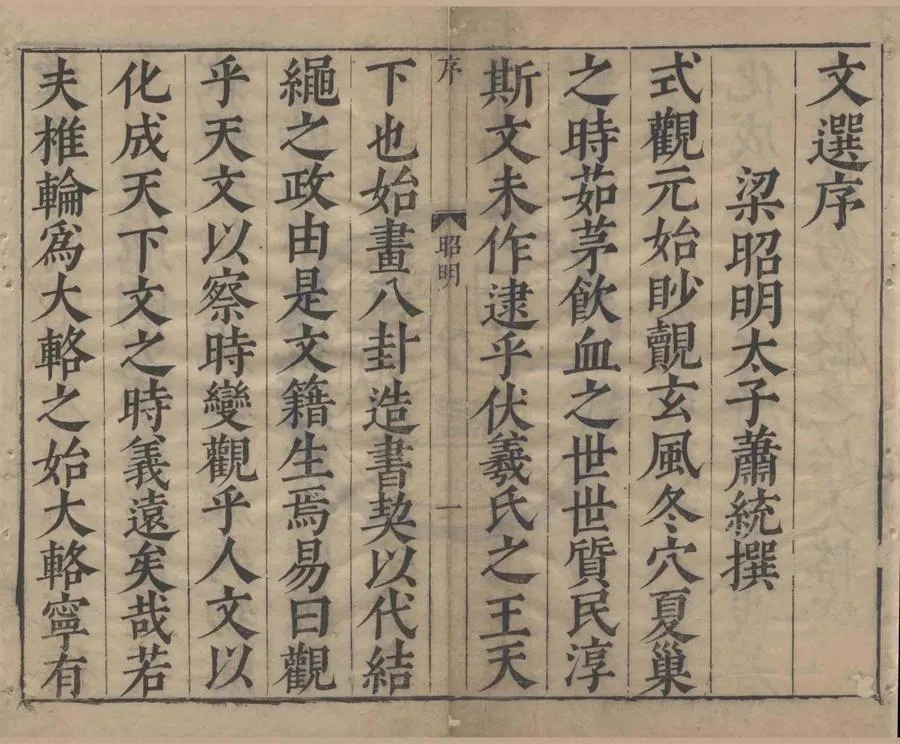 文選序
梁昭明太子蕭統撰
式觀元始眇覿玄風冬穴夏巢
之時茹茅飲血之世世質民淳
斯文未作逮乎伏羲氏之王天
序 昭明 一
下也始畫八卦造書契以代結
繩之政由是文籍生焉易曰觀
乎天文以察時變觀乎人文以
化成天下文之時義遠矣哉若
夫椎輪爲大輅之始大輅寧有